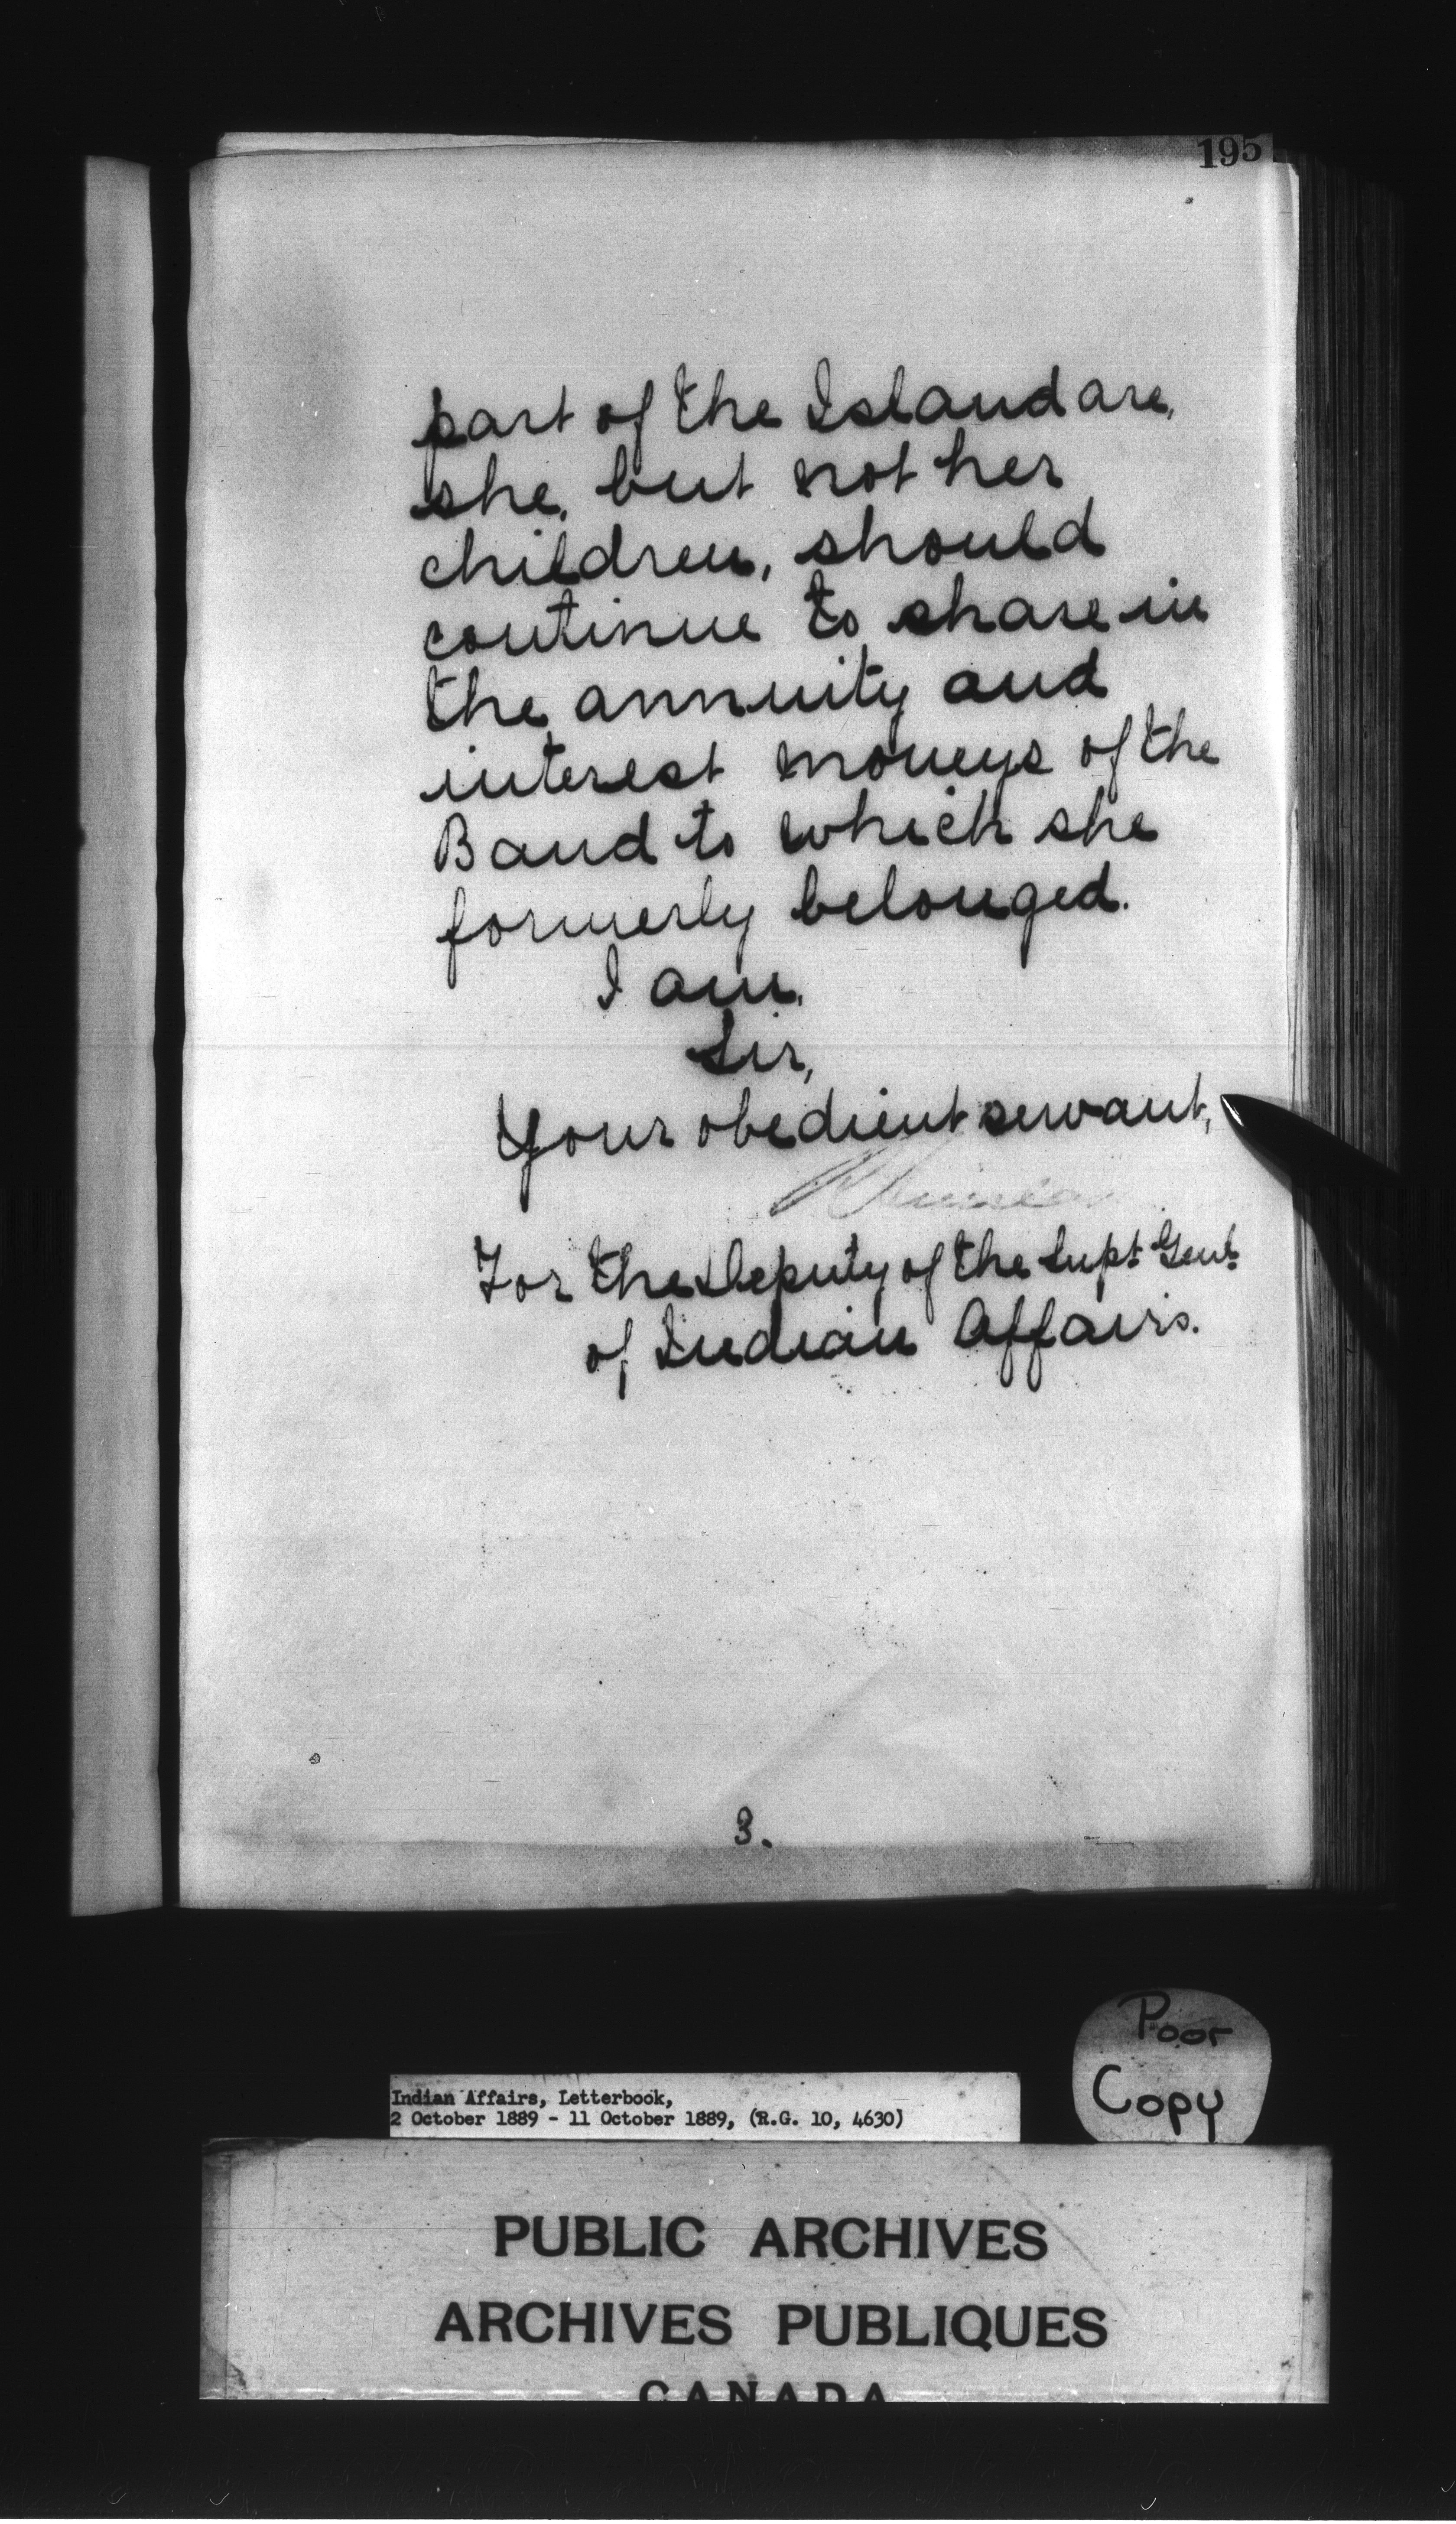 195
part of the Island are,
she, but not her
children, should
continue to share in
the annuity and
interest moneys of the
Band to which she
formerly belonged.
I am,
Sir,
Your obedient servant,
For the Deputy of the Supt. Genl.
of Indian Affairs.
3.
Poor
Copy
Indian Affairs, Letterbook,
2 October 1889 - 11 October 1889, (R.G. 10, 4630)
PUBLIC ARCHIVES
ARCHIVES PUBLIQUES
CANADA